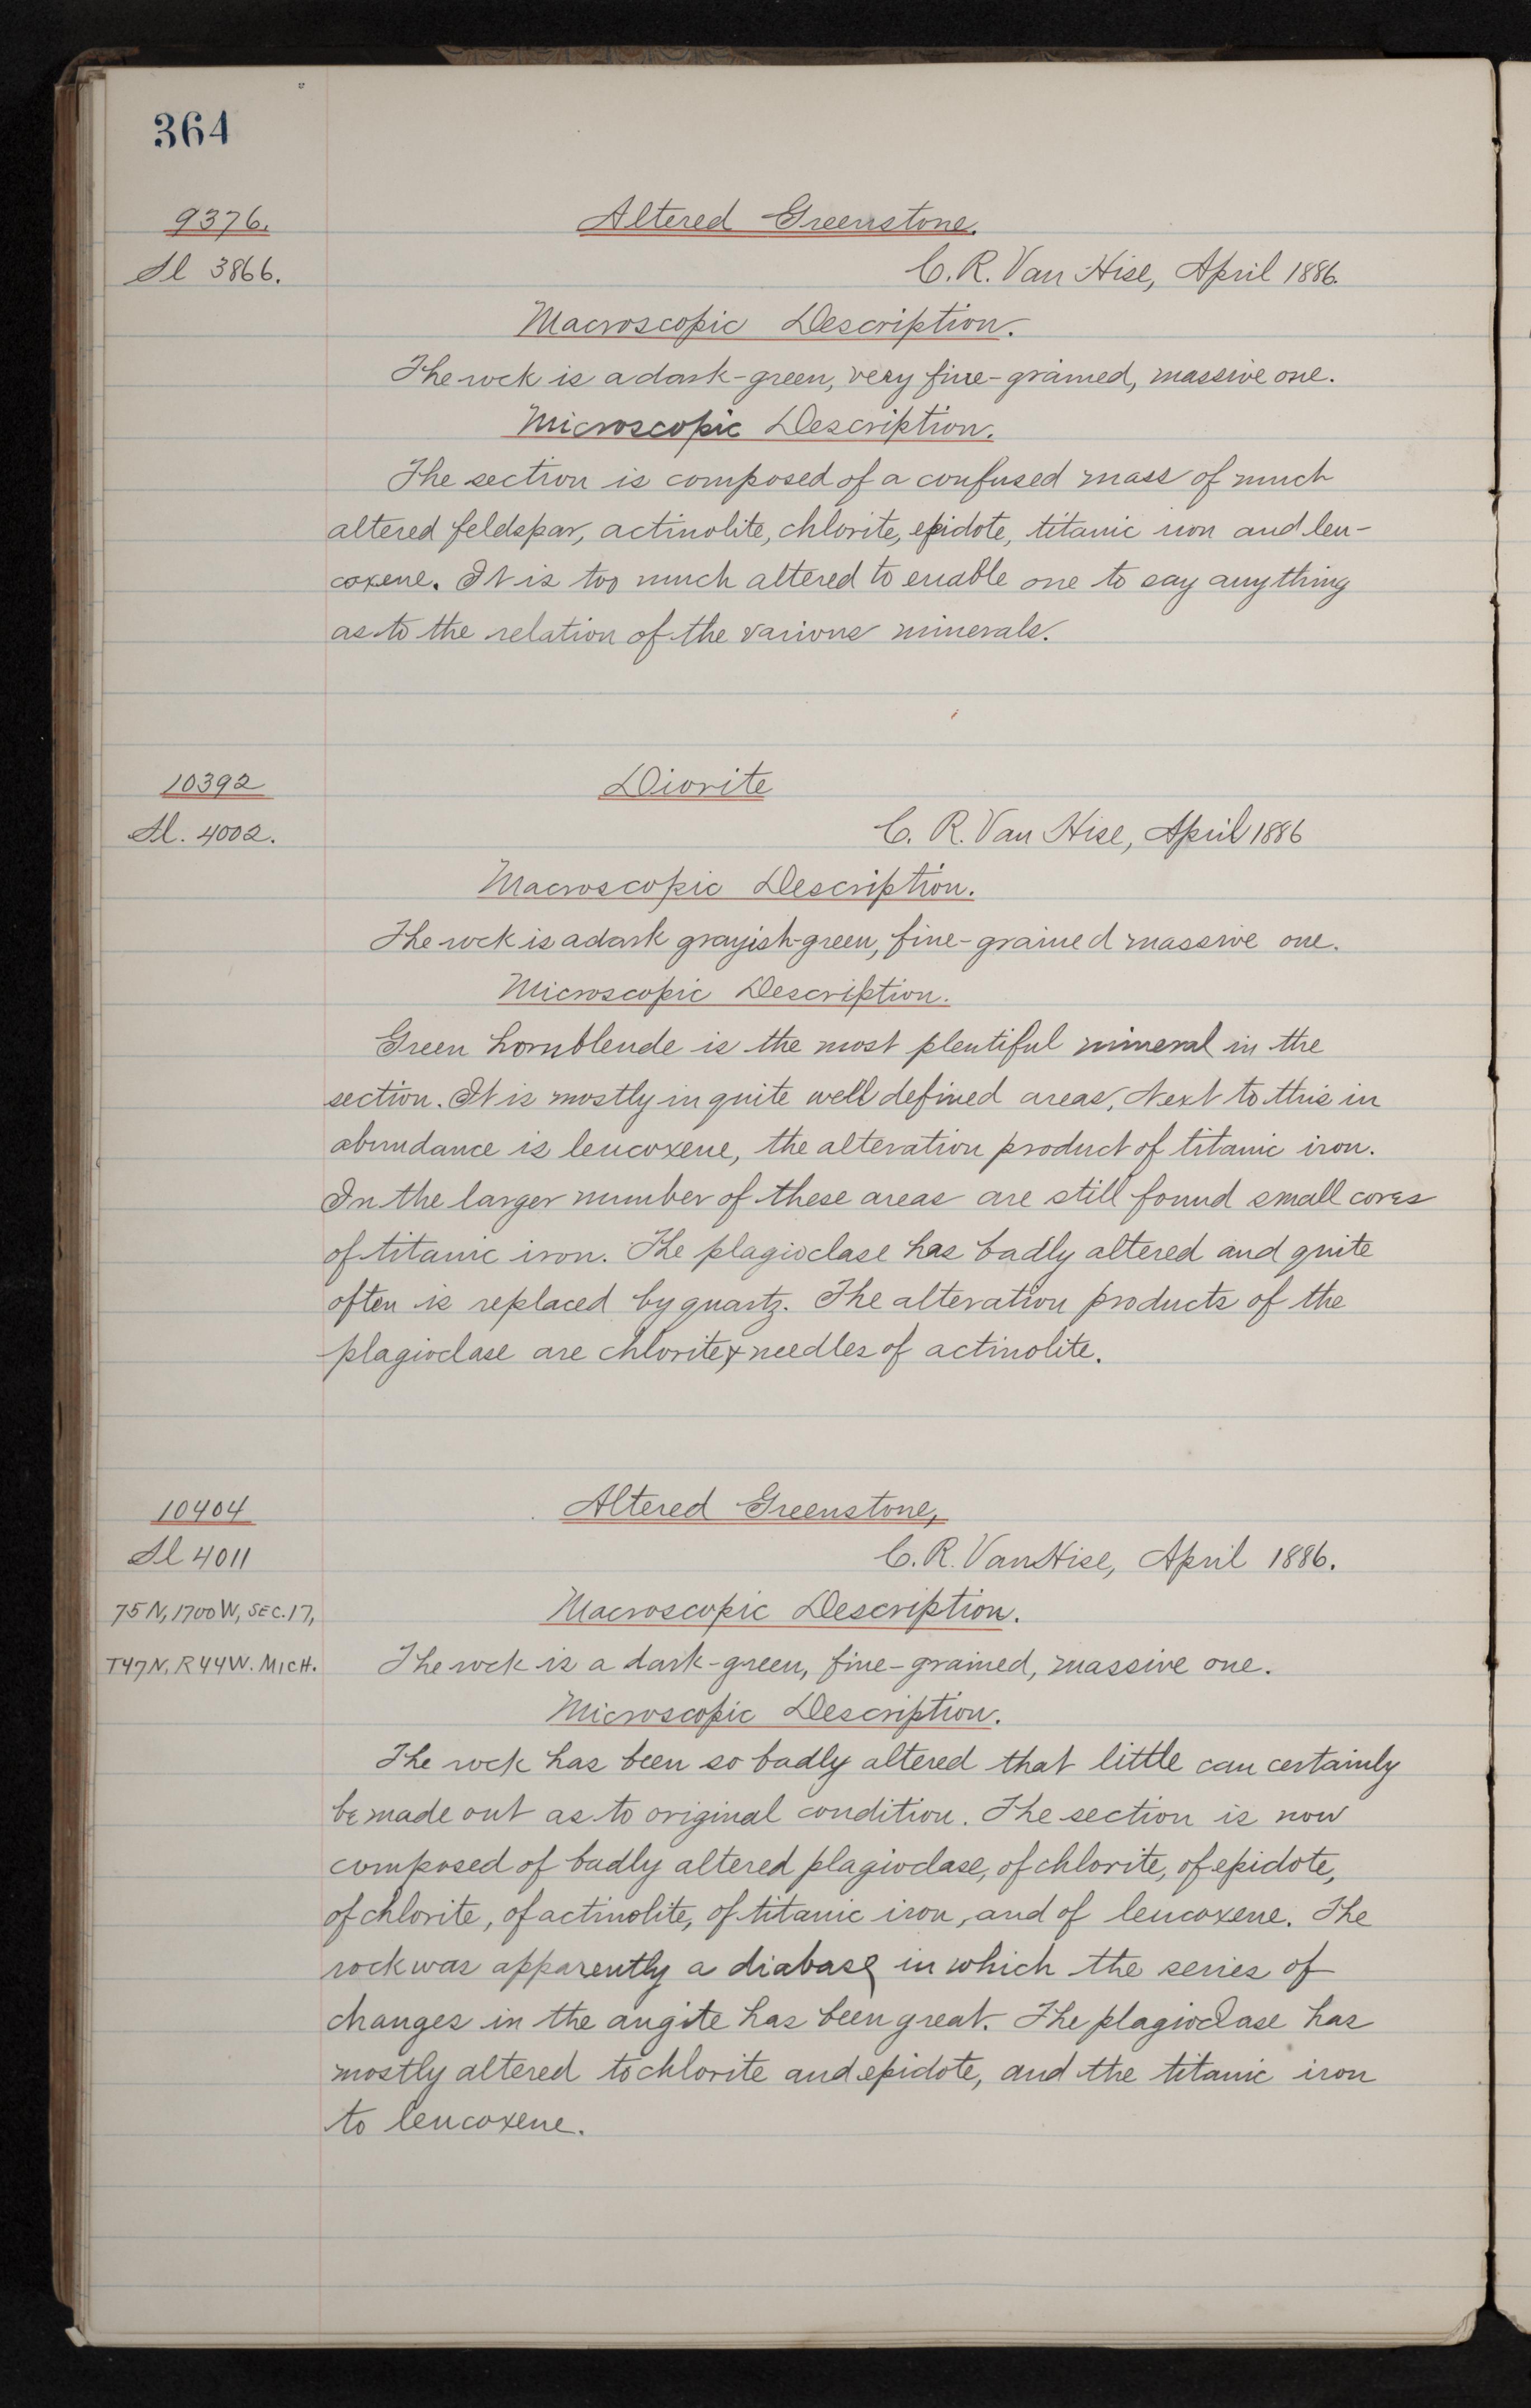 364
9376.
Altered Greenstone.
Sl 3866.
C. R. Van Hise, April 1886.
Macroscopic Description.
The rock is a dark-green, very fine-grained, massive one.
Microscopic Description.
The section is composed of a confused mass of much
altered feldspar, actinolite, chlorite, epidote, titanic iron and leu-
coxene. It is too much altered to enable one to say anything
as to the relation of the various minerals.
10392
Diorite
Sl. 4002.
C. R. Van Hise, April 1886
Macroscopic Description.
The rock is a dark grayish-green, fine-grained massive one.
Microscopic Description.
Green hornblende is the most plentiful mineral in the
section. It is mostly in quite well defined areas. Next to this in
abundance is leucoxene, the alteration product of titanic iron.
In the larger number of these areas are still found small cores
of titanic iron. The plagioclase has badly altered and quite
often is replaced by quartz. The alteration products of the
plagioclase are chlorite & needles of actinolite.
10404
Altered Greenstone,
Sl 4011
C. R. Van Hise, April 1886.
75 N, 1700 W, SEC. 17,
Macroscopic Description.
T47N, R44W. MICH.
The rock is a dark-green, fine-grained, massive one.
Microscopic Description.
The rock has been so badly altered that little can certainly
be made out as to original condition. The section is now
composed of badly altered plagioclase, of chlorite, of epidote,
of chlorite, of actinolite, of titanic iron, and of leucoxene. The
rock was apparently a diabase in which the series of
changes in the augite has been great. The plagioclase has
mostly altered to chlorite and epidote, and the titanic iron
to leucoxene.